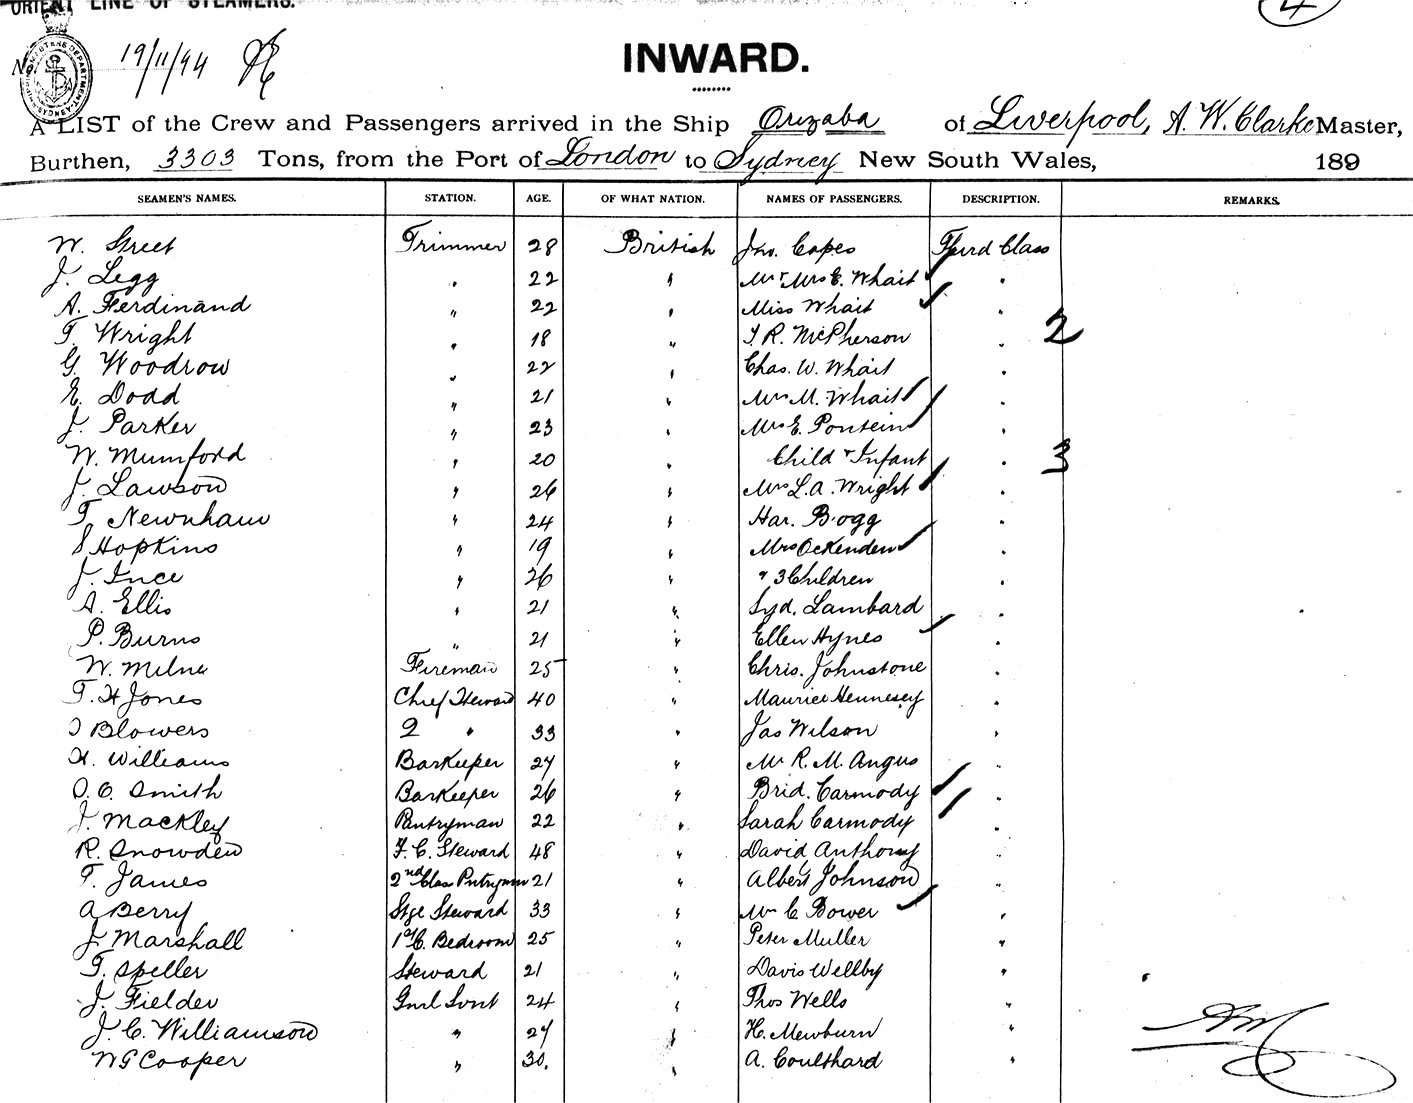 ORIENT LINE OF STEAMERS.
4
19/11/94
INWARD.
A LIST of the Crew and Passengers arrived in the Ship Orizaba of Liverpool, A. W. Clarke Master,
Burthen, 3303 Tons, from the Port of London to Sydney New South Wales, 189
SEAMEN'S NAMES. STATION. AGE. OF WHAT NATION. NAMES OF PASSENGERS. DESCRIPTION. REMARKS.
W. Street Trimmer 28 British Jno. Copes Third Class
J. Legg " 22 " Mr & Mrs E. Whait "
A. Ferdinand " 22 " Miss Whait "
T. Wright " 18 " T. R. McPherson " 2
G. Woodrow " 22 " Chas. W. Whait "
E. Dodd " 21 " Mrs M. Whait "
J. Parker " 23 " Mrs E. Pontein "
W. Mumford " 20 " Child & Infant " 3
J. Lawson " 26 " Mrs L. A. Wright "
T. Newnham " 24 " Har. Bogg "
S Hopkins " 19 " Mrs Ockenden "
J. Ince " 26 " & 3 Children "
A. Ellis " 21 " Syd. Lambard "
P. Burns " 21 " Ellen Hynes "
W. Milne Fireman 25 " Chris. Johnstone "
T. H Jones Chief Steward 40 " Maurice Hennesey "
J Blowers 2 " 33 " Jas Wilson "
H. Williams Barkeeper 27 " Mr R. M. Angus "
O. C. Smith Barkeeper 26 " Brid. Carmody "
J. Mackley Pantryman 22 " Sarah Carmody "
R. Snowden F. C. Steward 48 " David Anthony "
T. James 2nd Class Pntryman 21 " Albert Johnson "
A Berry Stge Steward 33 " Mr C Bower "
J. Marshall 1st C. Bedroom 25 " Peter Muller "
T. Speller Steward 21 " Davis Wellby "
J. Fielder Gnrl Svnt 24 " Thos Wells "
J. C. Williamson " 27 " H. Mewburn "
W G Cooper " 30. " A. Coulthard "